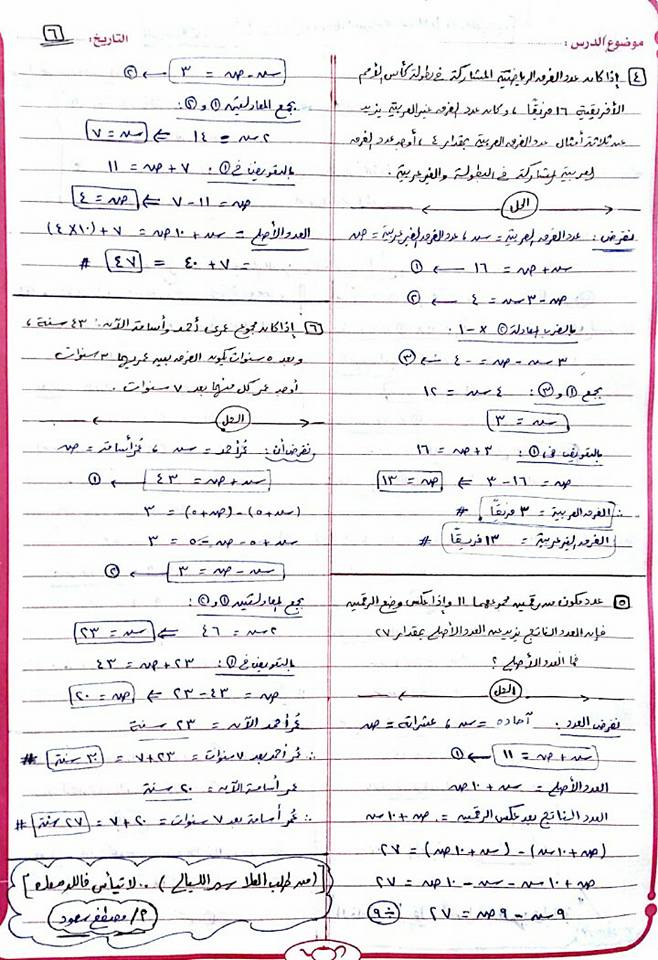 موضوع الدرس :
التاريخ :
٦
٤ إذا كان عدد الفرق الرياضية المشاركة فى بطولة كأس الأمم
الأفريقية ١٦ فريقًا ، وكان عدد الفرق غير العربية يزيد
عن ثلاثة أمثال عدد الفرق العربية بمقدار ٤ ، أوجد عدد الفرق
العربية المشاركة فى البطولة والغير عربية .
الحل
نفرض : عدد الفرق العربية = س ، عدد الفرق الغير عربية = ص
س + ص = ١٦ ← ①
ص - ٣س = ٤ ← ②
بالضرب المعادلة ② × -١
٣س - ص = -٤ ← ③
بجمع ① و ③ : ٤س = ١٢
س = ٣
بالتعويض فى ① : ٣ + ص = ١٦
ص = ١٦ - ٣ ⇐ ص = ١٣
∴ الفرق العربية = ٣ فريقًا #
الفرق الغير عربية = ١٣ فريقًا #
٥ عدد مكون من رقمين مجموعهما ١١ وإذا عكس وضع الرقمين
فإن العدد الناتج يزيد عن العدد الأصلى بمقدار ٢٧
فما العدد الأصلى ؟
الحل
نفرض العدد : آحاده = س ، عشراته = ص
س + ص = ١١ ← ①
العدد الأصلى = س + ١٠ص
العدد الناتج بعد عكس الرقمين = ص + ١٠س
(ص + ١٠س) - (س + ١٠ص) = ٢٧
ص + ١٠س - س - ١٠ص = ٢٧
٩س - ٩ص = ٢٧ ÷ ٩
س - ص = ٣ ← ②
بجمع المعادلتين ① و ② :
٢س = ١٤ ⇐ س = ٧
بالتعويض فى ① : ٧ + ص = ١١
ص = ١١ - ٧ ⇐ ص = ٤
العدد الأصلى = س + ١٠ص = ٧ + (١٠×٤)
= ٧ + ٤٠ = ٤٧ #
٦ إذا كان مجموع عمرى أحمد وأسامة الآن ٤٣ سنة ،
وبعد ٥ سنوات يكون الفرق بين عمريهما ٣ سنوات
أوجد عمر كل منهما بعد ٧ سنوات .
الحل
نفرض أن : عمر أحمد = س ، عمر أسامة = ص
س + ص = ٤٣ ← ①
(س + ٥) - (ص + ٥) = ٣
س + ٥ - ص - ٥ = ٣
س - ص = ٣ ← ②
بجمع المعادلتين ① و ② :
٢س = ٤٦ ⇐ س = ٢٣
بالتعويض فى ① : ٢٣ + ص = ٤٣
ص = ٤٣ - ٢٣ ⇐ ص = ٢٠
عمر أحمد الآن = ٢٣ سنة
∴ عمر أحمد بعد ٧ سنوات = ٢٣ + ٧ = ٣٠ سنة #
عمر أسامة الآن = ٢٠ سنة
∴ عمر أسامة بعد ٧ سنوات = ٢٠ + ٧ = ٢٧ سنة #
(من طلب العلا سهر الليالى) .. لا تيأس فالله معك
م / مصطفى سعود